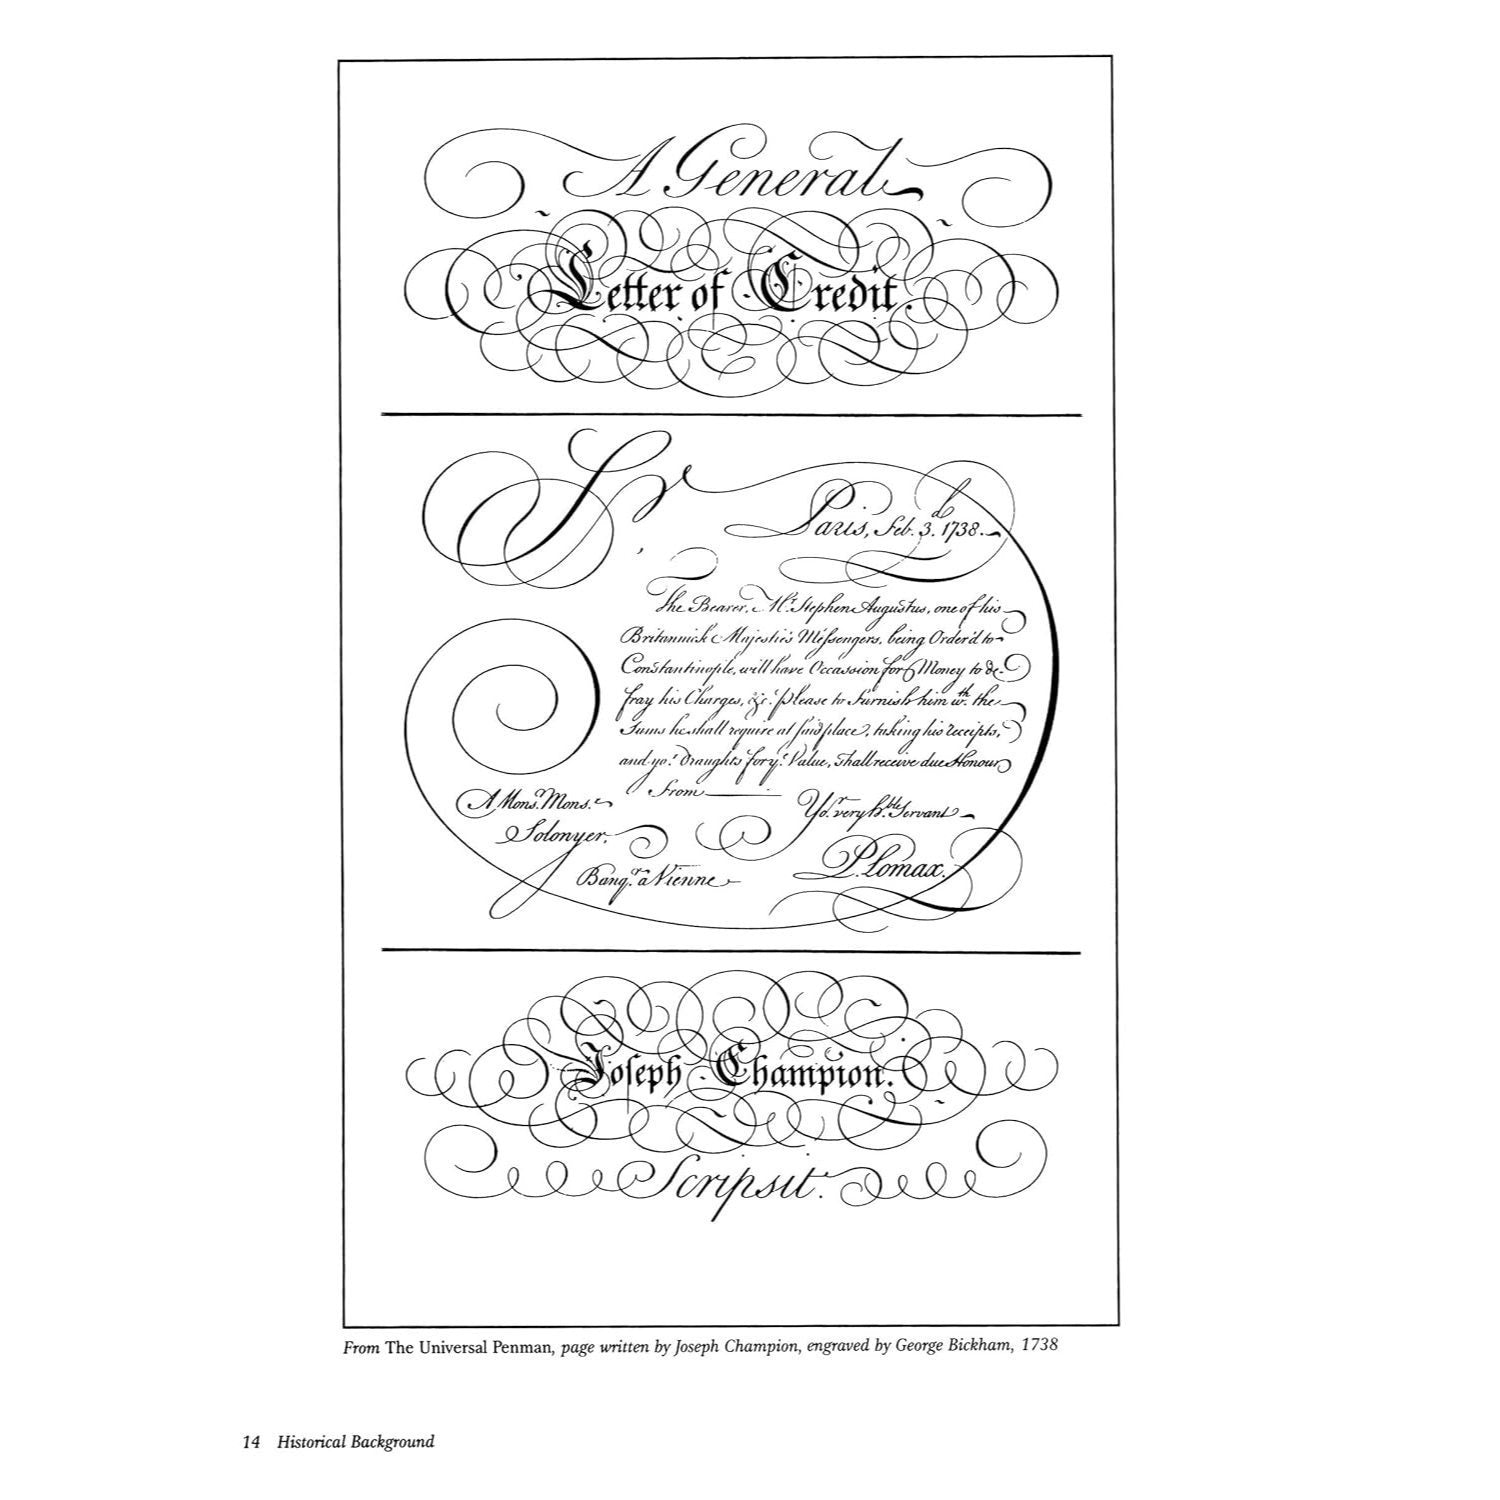 A General
Letter of Credit.
Sr,
Paris, Feb. 3.d 1738.
The Bearer, Mr. Stephen Augustus, one of his
Britannick Majestie's Meſsengers, being Order'd to
Constantinople, will have Occassion for Money to de-
fray his Charges, &c. please to Furnish him wth. the
Sums he shall require at said place, taking his receipts,
and yor. Draughts for ye. Value, shall receive due Honour
From
A Monsr. Mons.r
Solonyer,
Banqr. a Vienne
Yor. very h.ble Servant
P. Lomax.
Joſeph Champion.
Scripsit.
From The Universal Penman, page written by Joseph Champion, engraved by George Bickham, 1738
14 Historical Background